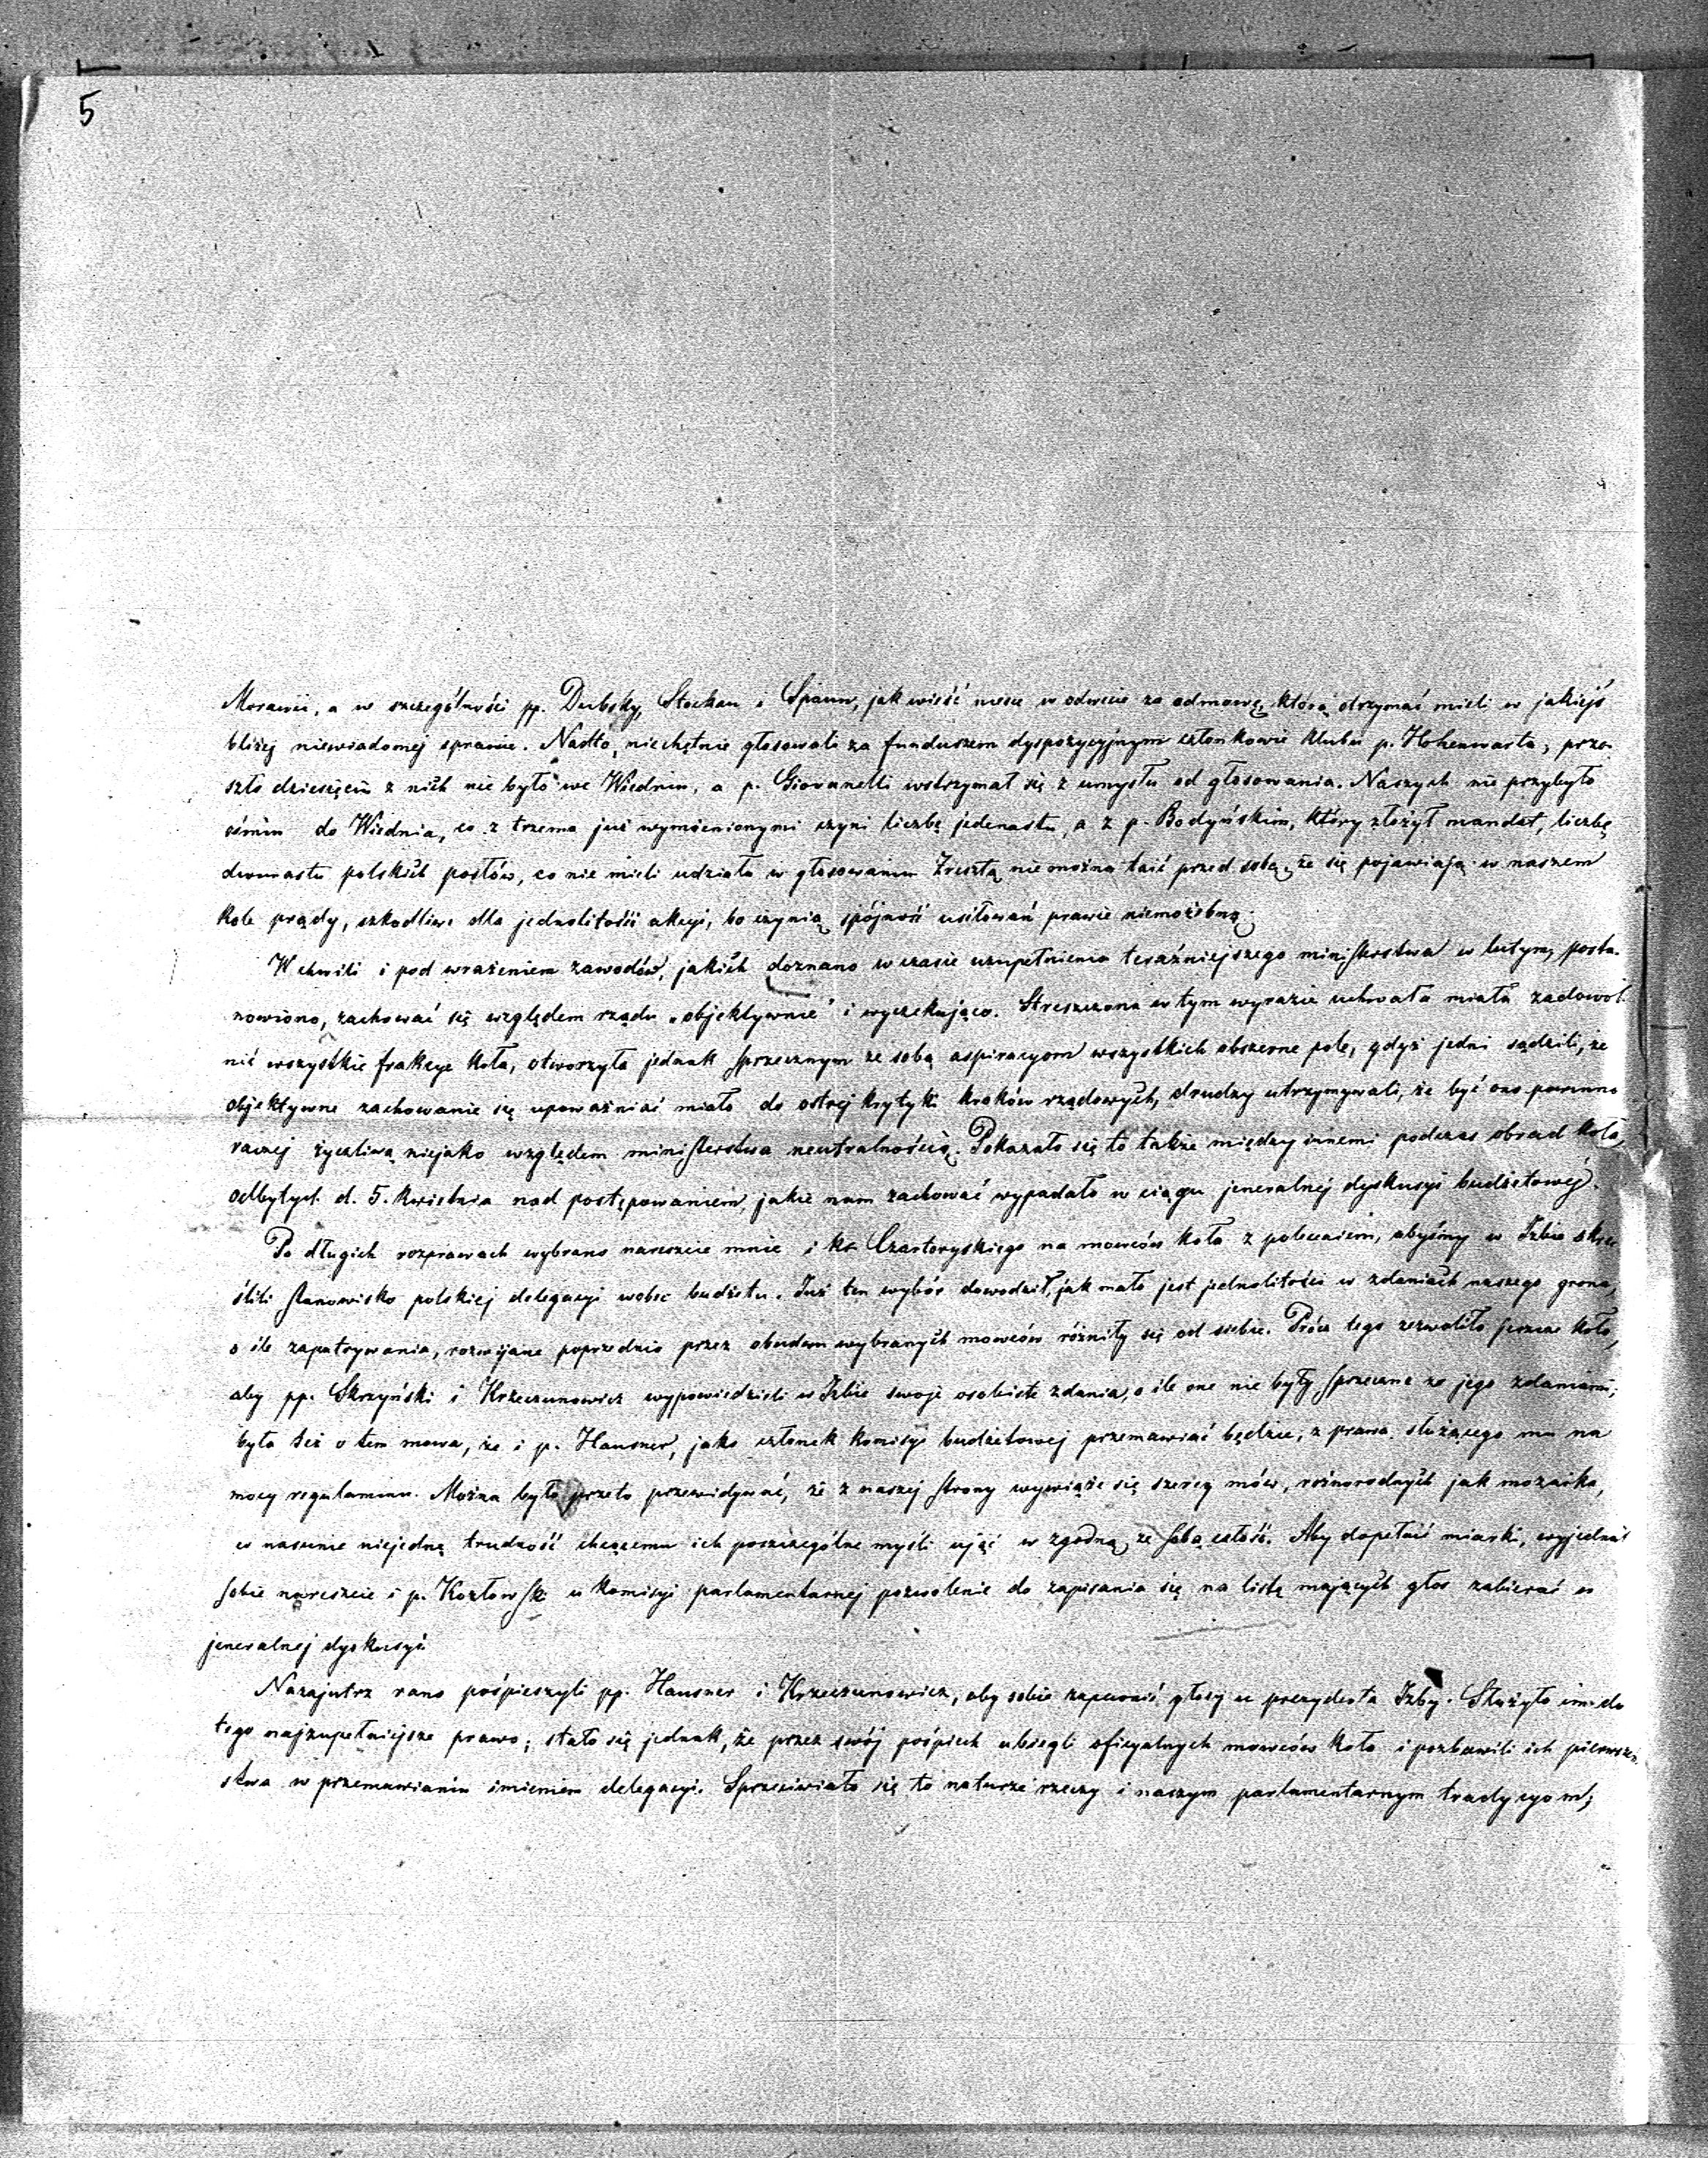 5
Morawii, a w szczególności pp. Dubsky, Stockau i Spaun, jak wieść niesie w odwecie za odmowę, którą otrzymać mieli w jakiejś
bliżej niewiadomej sprawie. Nadto, niechętnie głosowali za funduszem dyspozycyjnym członkowie klubu p. Hohenwarta, prze-
szło dziesięciu z nich nie było we Wiedniu, a p. Giovanelli wstrzymał się z umysłu od głosowania. Naszych nie przybyło
ośmiu do Wiednia, co z trzema już wymienionymi czyni liczbę jedenastu, a z p. Bodyńskim, który złożył mandat, liczbę
dwunastu polskich posłów, co nie mieli udziału w głosowaniu. Zresztą nie można taić przed sobą, że się pojawiają w naszem
kole prądy, szkodliwe dla jednolitości akcyi, bo czynią spójność usiłowań prawie niemożebną.
W chwili i pod wrażeniem zawodów, jakich doznano w czasie uzupełnienia teraźniejszego ministerstwa w lutym, posta-
nowiono, zachować się względem rządu „objektywnie” i wyczekująco. Streszczona w tym wyrazie uchwała miała zadowol-
nić wszystkie frakcye koła, otworzyła jednak sprzecznym ze sobą aspiracyom wszystkich obszerne pole, gdyż jedni sądzili, że
objektywne zachowanie się upoważniać miało do ostrej krytyki kroków rządowych, drudzy utrzymywali, że być ono powinno
raczej życzliwą niejako względem ministerstwa neutralnością. Pokazało się to także między innemi podczas obrad koła,
odbytych d. 5. kwietnia nad postępowaniem, jakie nam zachować wypadało w ciągu jeneralnej dyskusyi budżetowej.
Po długich rozprawach wybrano nareszcie mnie i ks. Czartoryskiego na mowców koła z poleceniem, abyśmy w Izbie skre-
ślili stanowisko polskiej delegacyi wobec budżetu. Już ten wybór dowodził, jak mało jest jednolitości w zdaniach naszego grona,
o ile zapatrywania, rozwijane poprzednio przez obudwu wybranych mowców różniły się od siebie. Prócz tego zezwoliło jeszcze koło,
aby pp. Skrzyński i Krzeczunowicz wypowiedzieli w Izbie swoje osobiste zdania, o ile one nie były sprzeczne ze jego zdaniami;
była też o tem mowa, że i p. Hausner, jako członek komisyi budżetowej przemawiać będzie, z prawa, służącego mu na
mocy regulaminu. Można było przeto przewidywać, że z naszej strony wywiąże się szereg mów, różnorodnych jak mozaika,
co nasunie niejedną trudność chcącemu ich poszczególne myśli ująć w zgodną ze sobą całość. Aby dopełnić miarki, wyjednał
sobie nareszcie i p. Kozłowski u komisyi parlamentarnej pozwolenie do zapisania się na listę mających głos zabierać w
jeneralnej dyskusyi.
Nazajutrz rano pośpieszyli pp. Hausner i Krzeczunowicz, aby sobie zapewnić głosy u prezydenta Izby. Służyło im do
tego najzupełniejsze prawo; stało się jednak, że przez swój pośpiech ubiegli oficyalnych mowców koła i pozbawili ich pierwszeń-
stwa w przemawianiu imieniem delegacyi. Sprzeciwiało się to naturze rzeczy i naszym parlamentarnym tradycyom;